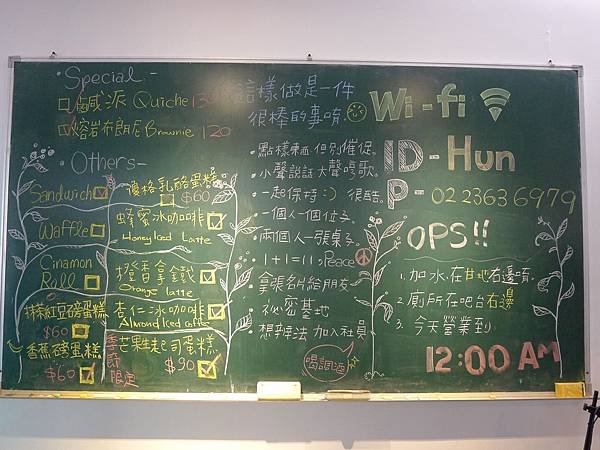 Special -
鹹派 Quiche 130
熔岩布朗尼 Brownie 120
Others-
Sandwich
Waffle
Cinamon Roll
抹茶紅豆磅蛋糕
$60
香蕉磅蛋糕
$60
優格乳酪蛋糕
$60
蜂蜜冰咖啡
Honey Iced Latte
橙香拿鐵
Orange latte
杏仁冰咖啡
Almond Iced coffee
季節限定
芒果生起司蛋糕
$90
這樣做是一件
很棒的事唷
點樣東西 但別催促
小聲說話 大聲唱歌
一起保持:) 很酷
一個人一個位子
兩個人一張桌子
1+1=11, Peace
拿張名片給朋友
祕密基地
想辦法 加入社員
喝調酒
Wi-fi
ID-Hun
P- 02 2363 6979
OPS!!
1. 加水.在甘地右邊唷.
2. 廁所在吧台右邊
3. 今天營業到.
12:00 AM